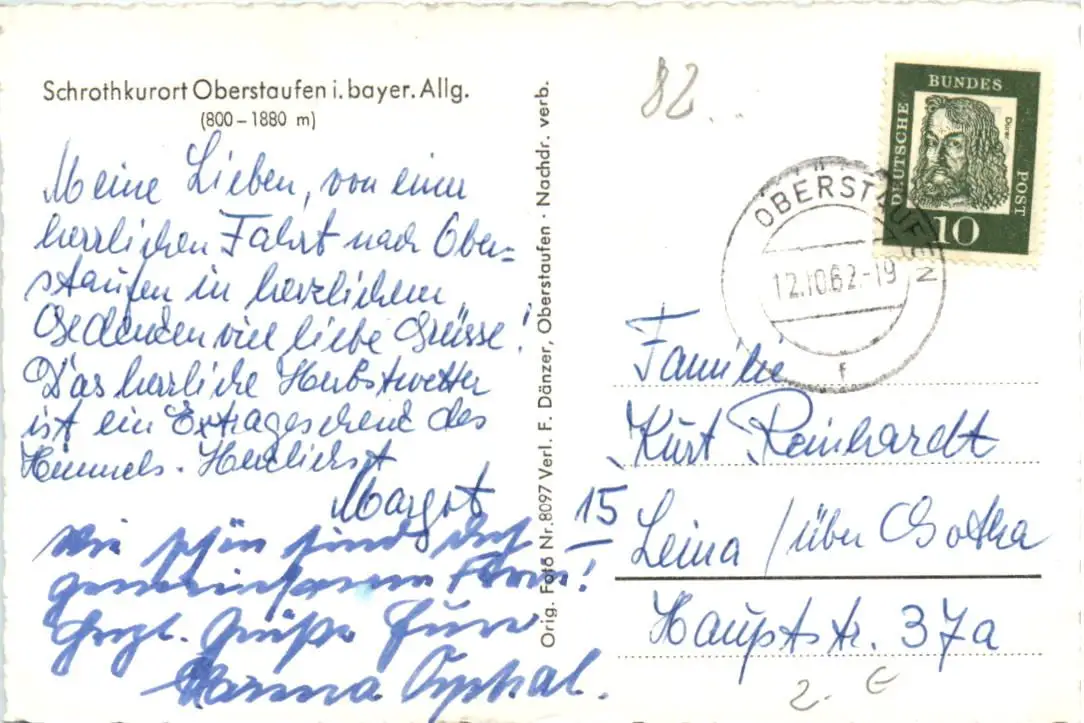 Schrothkurort Oberstaufen i. bayer. Allg.
(800 – 1880 m)
Meine Lieben, von einer
herrlichen Fahrt nach Ober-
staufen in herzlichem
Gedenken viel liebe Grüsse!
Das herrliche Herbstwetter
ist ein Extrageschenk des
Himmels. Herzlichst
Margot
Wie schön sind doch
gemeinsame
Herzl. Grüße Eure
Orig. Foto Nr. 8097 Verl. F. Dänzer, Oberstaufen · Nachdr. verb.
82
DEUTSCHE
BUNDES
POST
Dürer
10
OBERSTAUFEN
12.10.62.-19
f
Familie
Kurt Reinhardt
15 Leina / über Gotha
Hauptstr. 37a
2.- €